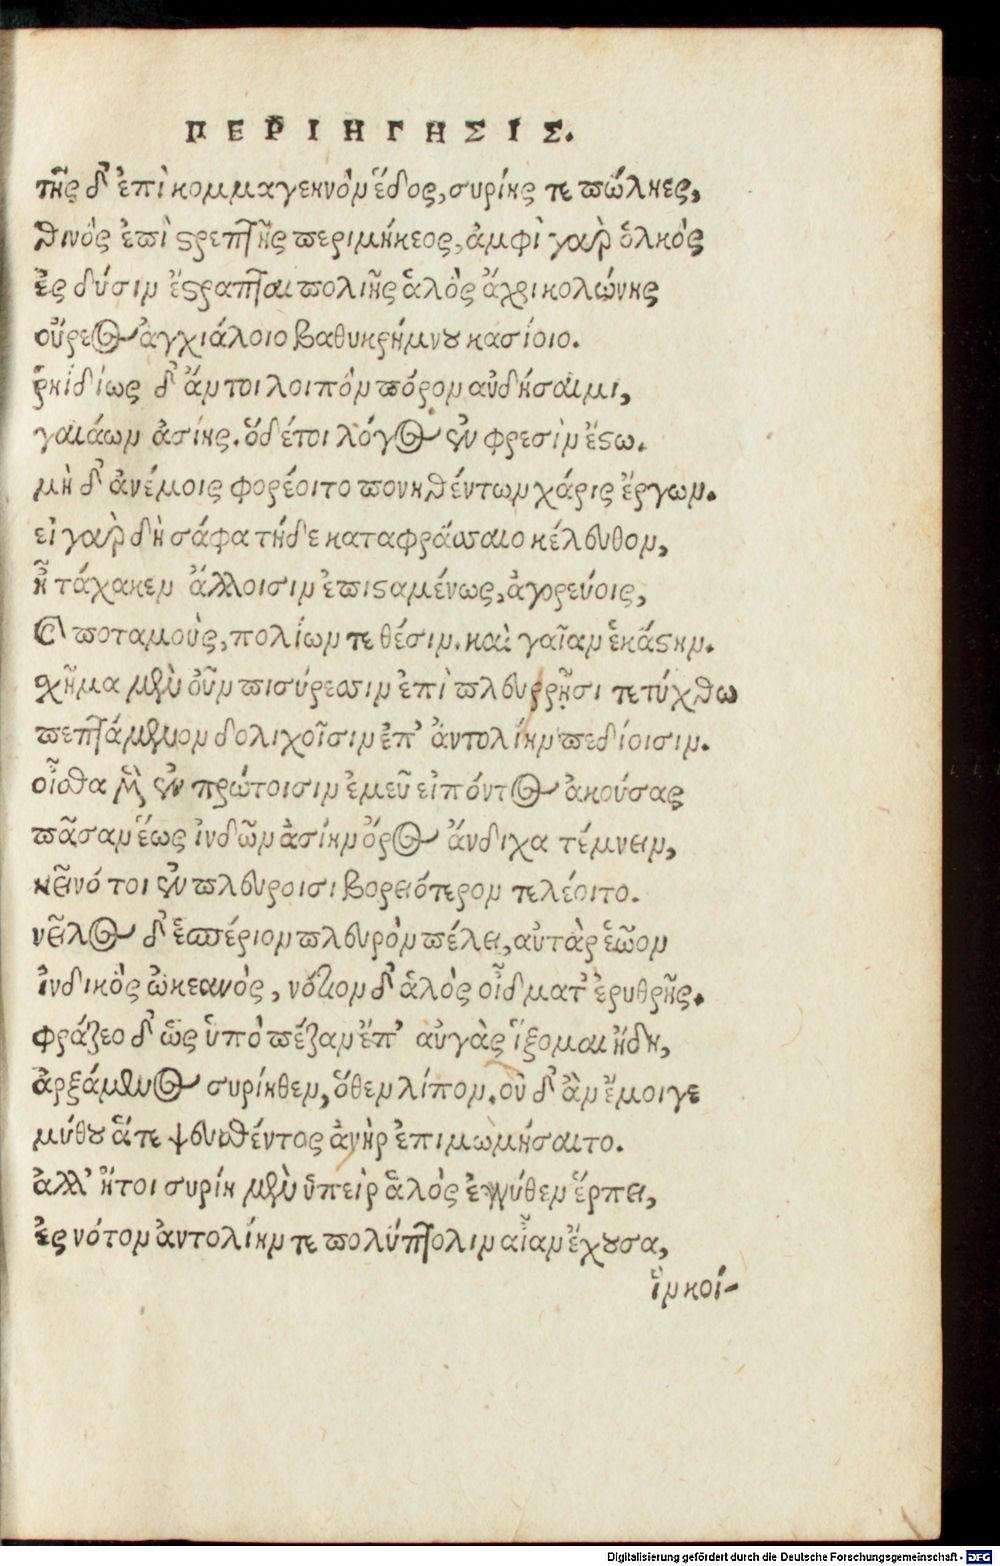 ΠΕΡΙΗΓΗΣΙΣ.
τῆς δ' ἐπὶ κομμαγεκνὸν ἕδος, συρίης τε πόληες,
θινὸς ἐπὶ στρεπτῆς περιμήκεος, ἀμφὶ γὰρ ὁλκὸς
ἐς δύσιν ἔστραπται πολιῆς ἁλὸς ἄχρι κολώνης
οὔρεος ἀγχιάλοιο βαθυκρήμνου κασίοιο.
ῥηϊδίως δ' ἄν τοι λοιπὸν πόρον αὐδήσαιμι,
γαιάων ἀσίης. ὁ δέ τοι λόγος ἐν φρεσὶν ἔστω.
μὴ δ' ἀνέμοις φορέοιτο πονηθέντων χάρις ἔργων.
εἰ γὰρ δὴ σάφα τήνδε καταφράσσαιο κέλευθον,
ἦ τάχα κεν ἄλλοισιν ἐπισταμένως, ἀγορεύοις,
καὶ ποταμοὺς, πολίων τε θέσιν. καὶ γαῖαν ἑκάστην.
σχῆμα μὲν οὖν πισύρεσσιν ἐπὶ πλευρῇσι τετύχθω
πεπταμένον δολιχοῖσιν ἐπ' ἀντολίην πεδίοισιν.
οἶσθα γὰρ ἐν πρώτοισιν ἐμεῦ εἰπόντος ἀκούσας
πᾶσαν ἕως ἰνδῶν ἀσίην ὄρος ἄνδιχα τέμνειν,
κεῖνό τοι ἐν πλευροισι βορειότερον τελέοιτο.
νεῖλος δ' ἑσπέριον πλευρὸν πέλει, αὐτὰρ ἑῶον
ἰνδικὸς ὠκεανὸς, νότιον δ' ἁλὸς οἶδματ' ἐρυθρῆς.
φράζεο δ' ὡς ὑπὸ πέζαν ἔπ' αὐγὰς ἵξομαι ἤδη,
ἀρξάμενος συρίηθεν, ὅθεν λίπον. οὐ δ' ἂν ἔμοιγε
μύθου ἅτε ψευσθέντος ἀνὴρ ἐπιμωμήσαιτο.
ἀλλ' ἤτοι συρίη μὲν ὑπεὶρ ἁλὸς ἐγγύθεν ἕρπει,
ἐς νότον ἀντολίην τε πολύπτολιν αἶαν ἔχουσα,
ἣν κοί-
Digitalisierung gefördert durch die Deutsche Forschungsgemeinschaft - DFG